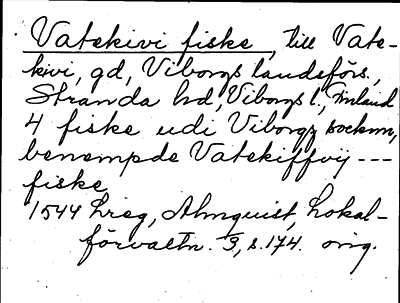 Vatekivi fiske, till Vate-
kivi, gd, Viborgs landsförs.,
Stranda hd, Viborgs l., Finland
4 fiske udi Viborgz socknn,
benempde Vatekiffvij ---
fiske
1544 hreg, Almquist, Lokal-
förvaltn. 3, s. 174. orig.